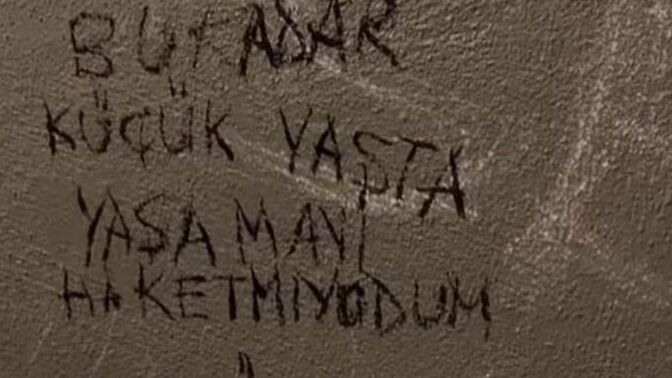 BU KADAR
KÜÇÜK YAŞTA
YAŞAMAYI
HAKETMİYODUM
"